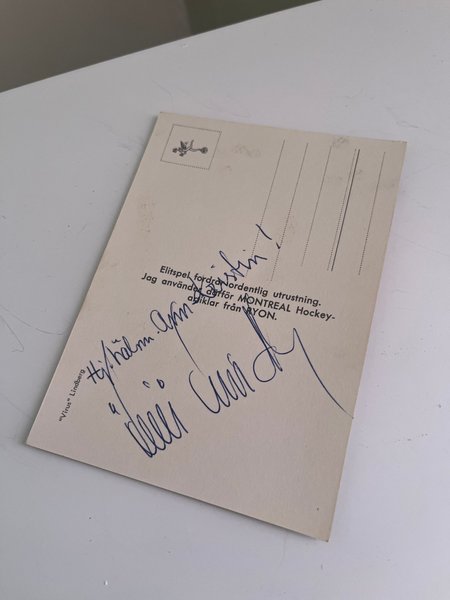 Elitspel fordrar ordentlig utrustning.
Jag använder därför MONTREAL Hockey-
artiklar från RYON.
Hj. hälsn. Ann-Kristin!
"Virus" Lindberg